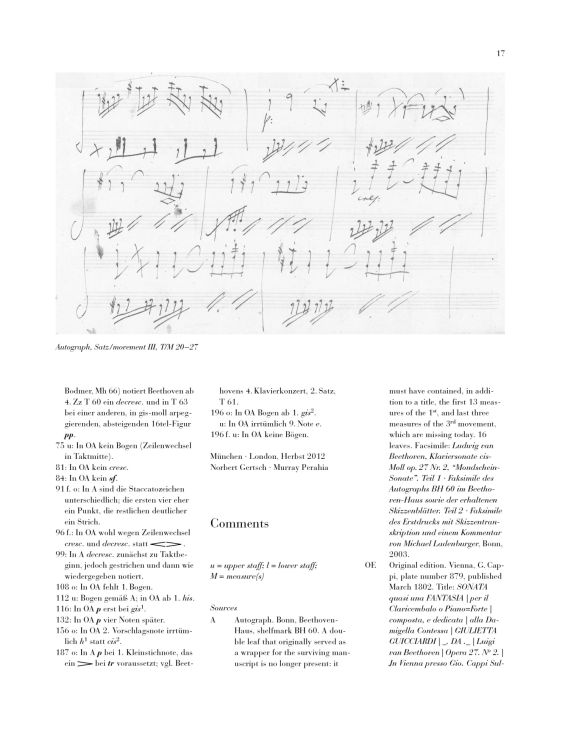 17
Autograph, Satz/movement III, T/M 20–27
Bodmer, Mh 66) notiert Beethoven ab
4. Zz T 60 ein decresc. und in T 63
bei einer anderen, in gis-moll arpeg-
gierenden, absteigenden 16tel-Figur
pp.
75 u: In OA kein Bogen (Zeilenwechsel
in Taktmitte).
81: In OA kein cresc.
84: In OA kein sf.
91 f. o: In A sind die Staccatozeichen
unterschiedlich; die ersten vier eher
ein Punkt, die restlichen deutlicher
ein Strich.
96 f.: In OA wohl wegen Zeilenwechsel
cresc. und decresc. statt <>.
99: In A decresc. zunächst zu Taktbe-
ginn, jedoch gestrichen und dann wie
wiedergegeben notiert.
108 o: In OA fehlt 1. Bogen.
112 u: Bogen gemäß A; in OA ab 1. his.
116: In OA p erst bei gis¹.
132: In OA p vier Noten später.
156 o: In OA 2. Vorschlagsnote irrtüm-
lich h¹ statt cis².
187 o: In A p bei 1. Kleinstichnote, das
ein > bei tr voraussetzt; vgl. Beet-
hovens 4. Klavierkonzert, 2. Satz,
T 61.
196 o: In OA Bogen ab 1. gis².
u: In OA irrtümlich 9. Note e.
196 f. u: In OA keine Bögen.
München · London, Herbst 2012
Norbert Gertsch · Murray Perahia
Comments
u = upper staff; l = lower staff;
M = measure(s)
Sources
A Autograph. Bonn, Beethoven-
Haus, shelfmark BH 60. A dou-
ble leaf that originally served as
a wrapper for the surviving man-
uscript is no longer present; it
must have contained, in addi-
tion to a title, the first 13 meas-
ures of the 1st, and last three
measures of the 3rd movement,
which are missing today. 16
leaves. Facsimile: Ludwig van
Beethoven, Klaviersonate cis-
Moll op. 27 Nr. 2, “Mondschein-
Sonate”, Teil 1 · Faksimile des
Autographs BH 60 im Beetho-
ven-Haus sowie der erhaltenen
Skizzenblätter. Teil 2 · Faksimile
des Erstdrucks mit Skizzentran-
skription und einem Kommentar
von Michael Ladenburger, Bonn,
2003.
OE Original edition. Vienna, G. Cap-
pi, plate number 879, published
March 1802. Title: SONATA
quasi una FANTASIA | per il
Clavicembalo o Piano=Forte |
composta, e dedicata | alla Da-
migella Contessa | GIULIETTA
GUICCIARDI | _. DA ._ | Luigi
van Beethoven | Opera 27. No 2. |
In Vienna presso Gio. Cappi Sul-